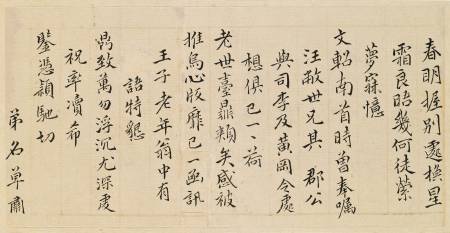 春明握別遽換星
霜良晤幾何徒縈
夢寐憶
文軺南首時曾奉囑
汪敝世兄其 郡公
典司李及黃岡令處
想俱已一一荷
老世臺鼎頰矣感被
推烏心版靡已一函訊
王子老年翁中有
語特懇
致萬勿浮沉尤深虔
祝率瀆希
鑒憑穎馳切
弟名單肅